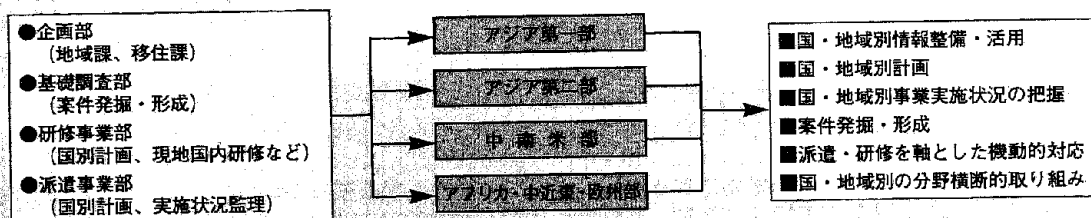 ●企画部
(地域課、移住課)
●基礎調査部
(案件発掘・形成)
●研修事業部
(国別計画、現地国内研修など)
●派遣事業部
(国別計画、実施状況監理)
アジア第一部
アジア第二部
中南米部
アフリカ・中近東・欧州部
■国・地域別情報整備・活用
■国・地域別計画
■国・地域別事業実施状況の把握
■案件発掘・形成
■派遣・研修を軸とした機動的対応
■国・地域別の分野横断的取り組み